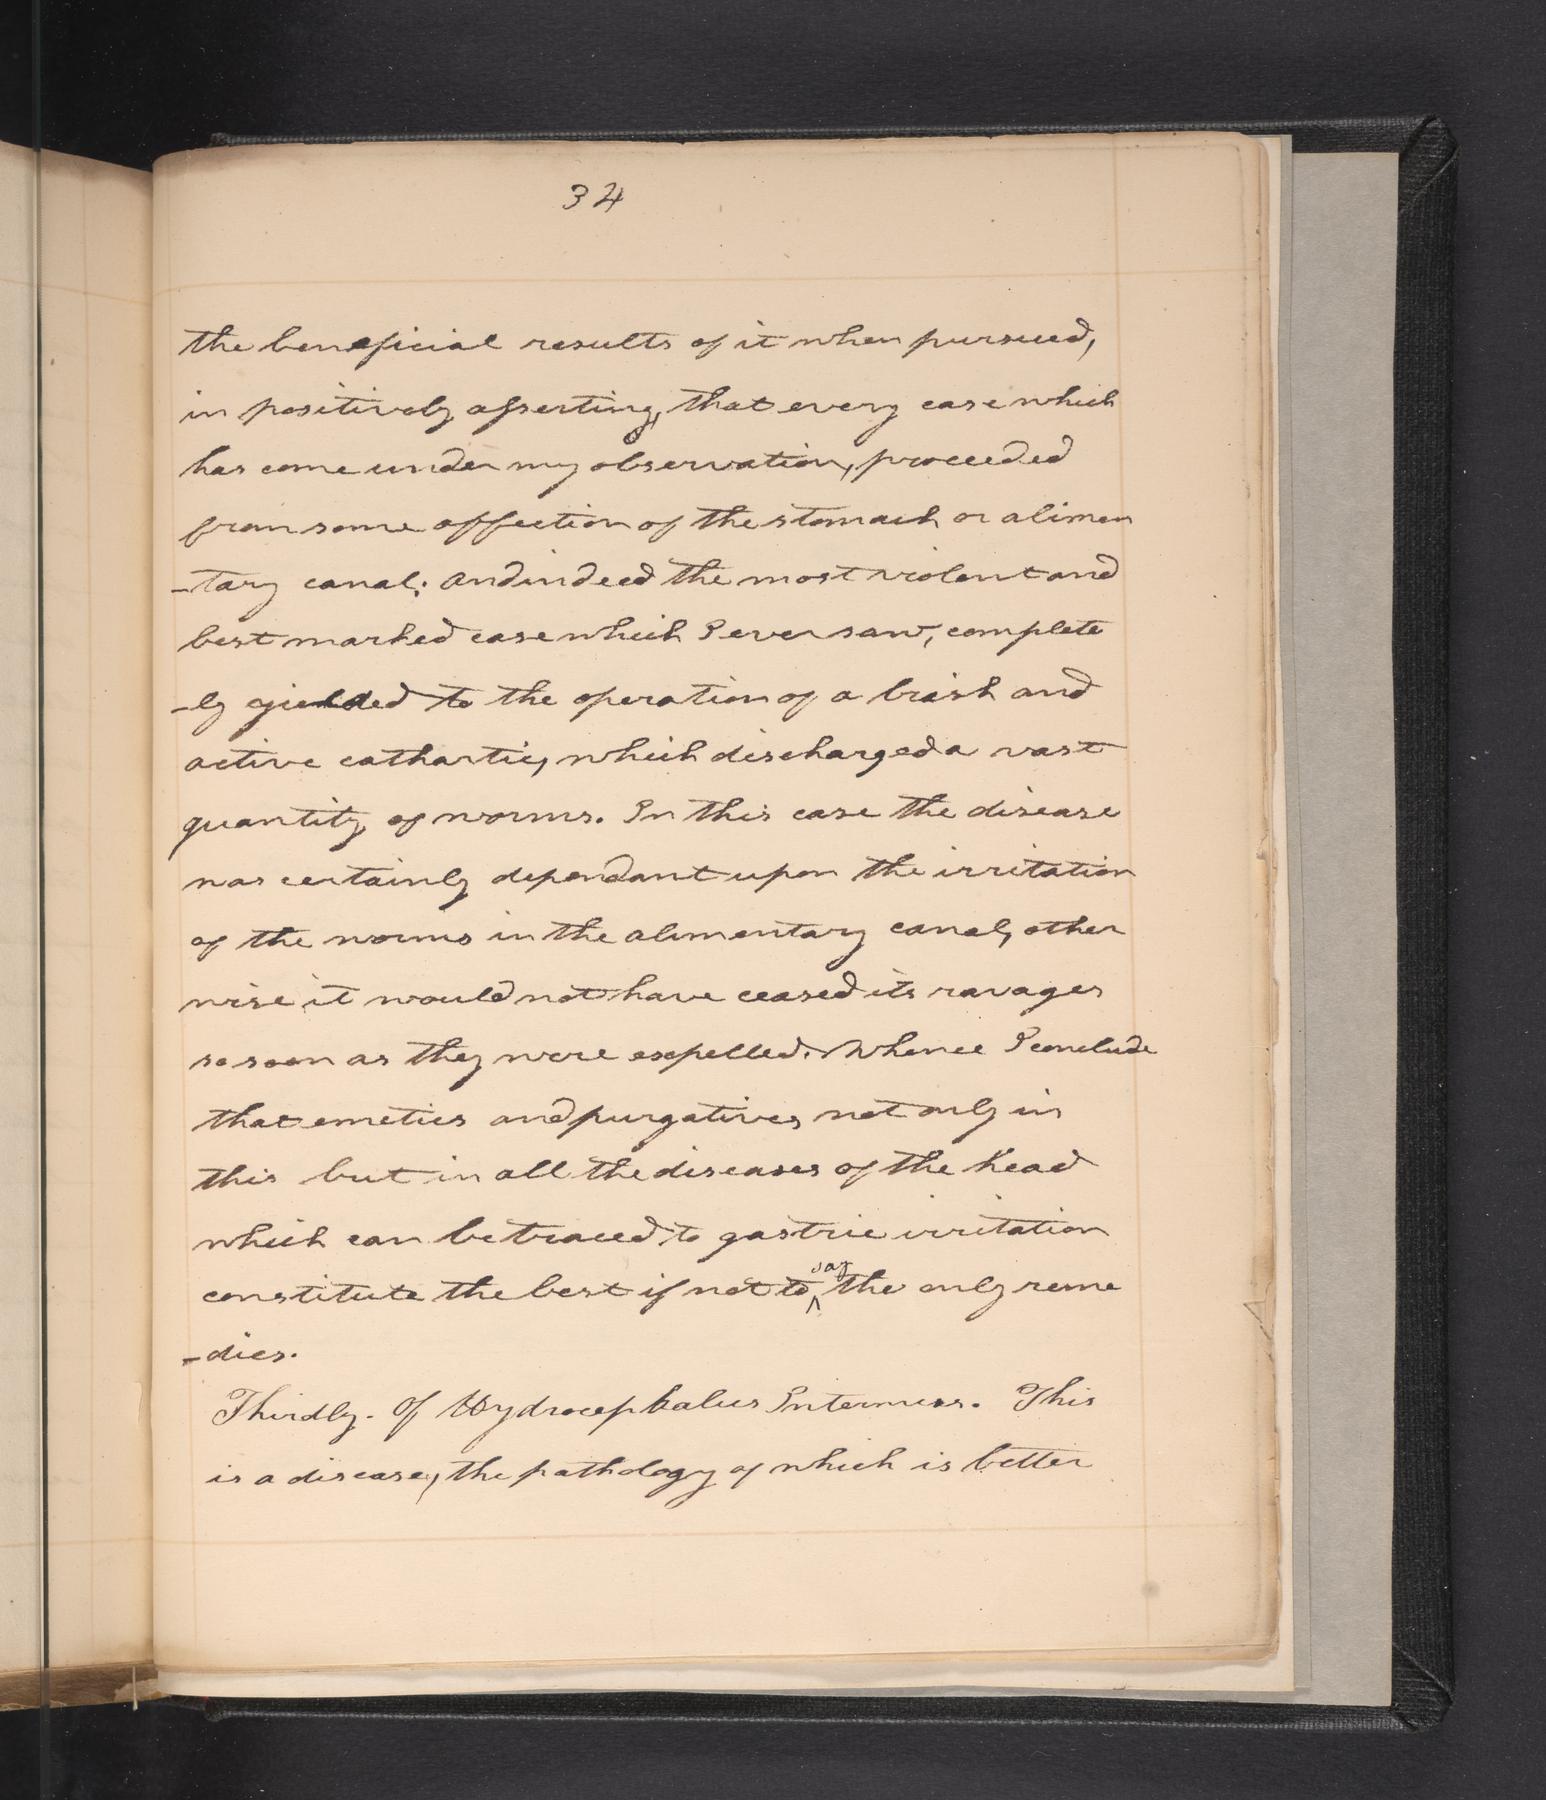 34
the beneficial results of it when pursued,
in positively asserting, that every case which
has come under my observation, proceeded
from some affection of the stomach or alimen
-tary canal; and indeed the most violent and
best marked case which I ever saw, complete
-ly yielded to the operation of a brisk and
active cathartic, which discharged a vast
quantity of worms. In this case the disease
was certainly dependant upon the irritation
of the worms in the alimentary canal, other
wise it would not have ceased its ravages
so soon as they were expelled. Whence I conclude
that emetics and purgatives, not only in
this but in all the diseases of the head
which can be traced to gastric irritation
constitute the best if not to say the only reme
-dies.
Thirdly. Of Hydrocephalus Internus. This
is a disease, the pathology of which is better